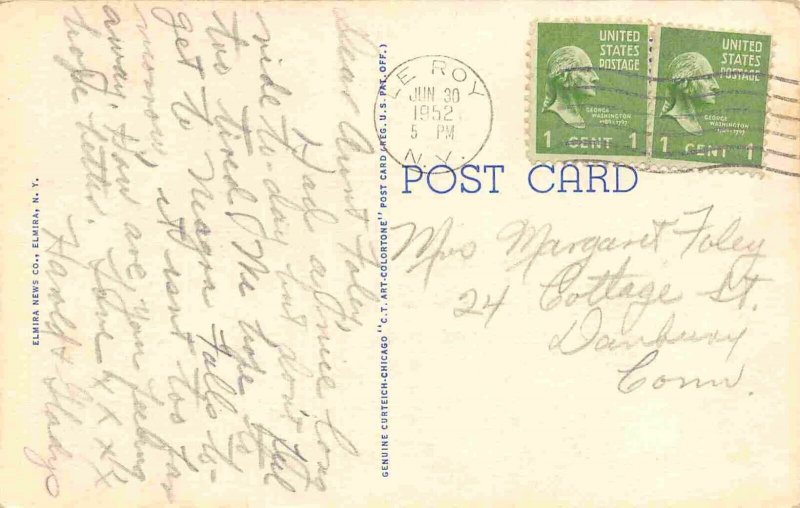 UNITED
STATES
POSTAGE
GEORGE
WASHINGTON
1 CENT 1
UNITED
STATES
POSTAGE
GEORGE
WASHINGTON
1 CENT 1
LE ROY
JUN 30
1952
5 PM
N.Y.
POST CARD
Mrs Margaret Foley
24 Cottage St.
Danbury
Conn.
GENUINE CURTEICH-CHICAGO "C.T. ART-COLORTONE" POST CARD (REG. U.S. PAT. OFF.)
Dear Aunt Foley
Had a nice long
ride to-day but don't feel
too tired. We hope to
get to Niagra Falls to-
morrow, it isnt too far
away. How are you feeling
hope better. Love x x x x
Harold & Gladys
ELMIRA NEWS CO., ELMIRA, N. Y.